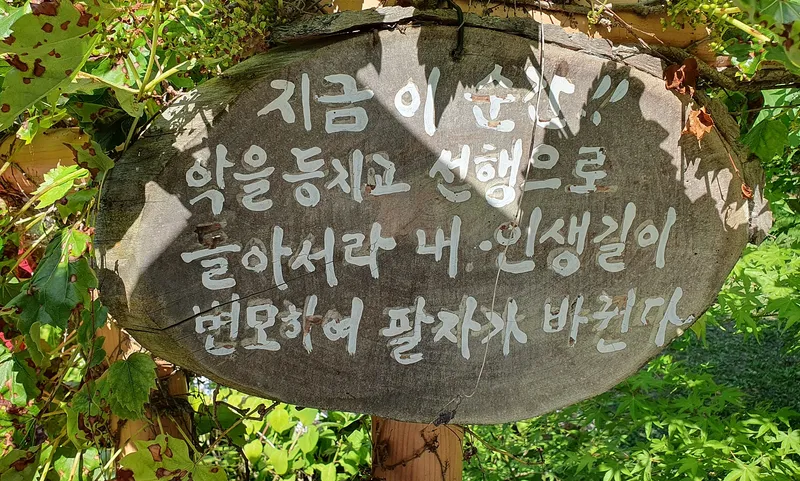 지금 이 순간!!
악을 등지고 선행으로
돌아서라 내 인생길이
변모하여 팔자가 바뀐다